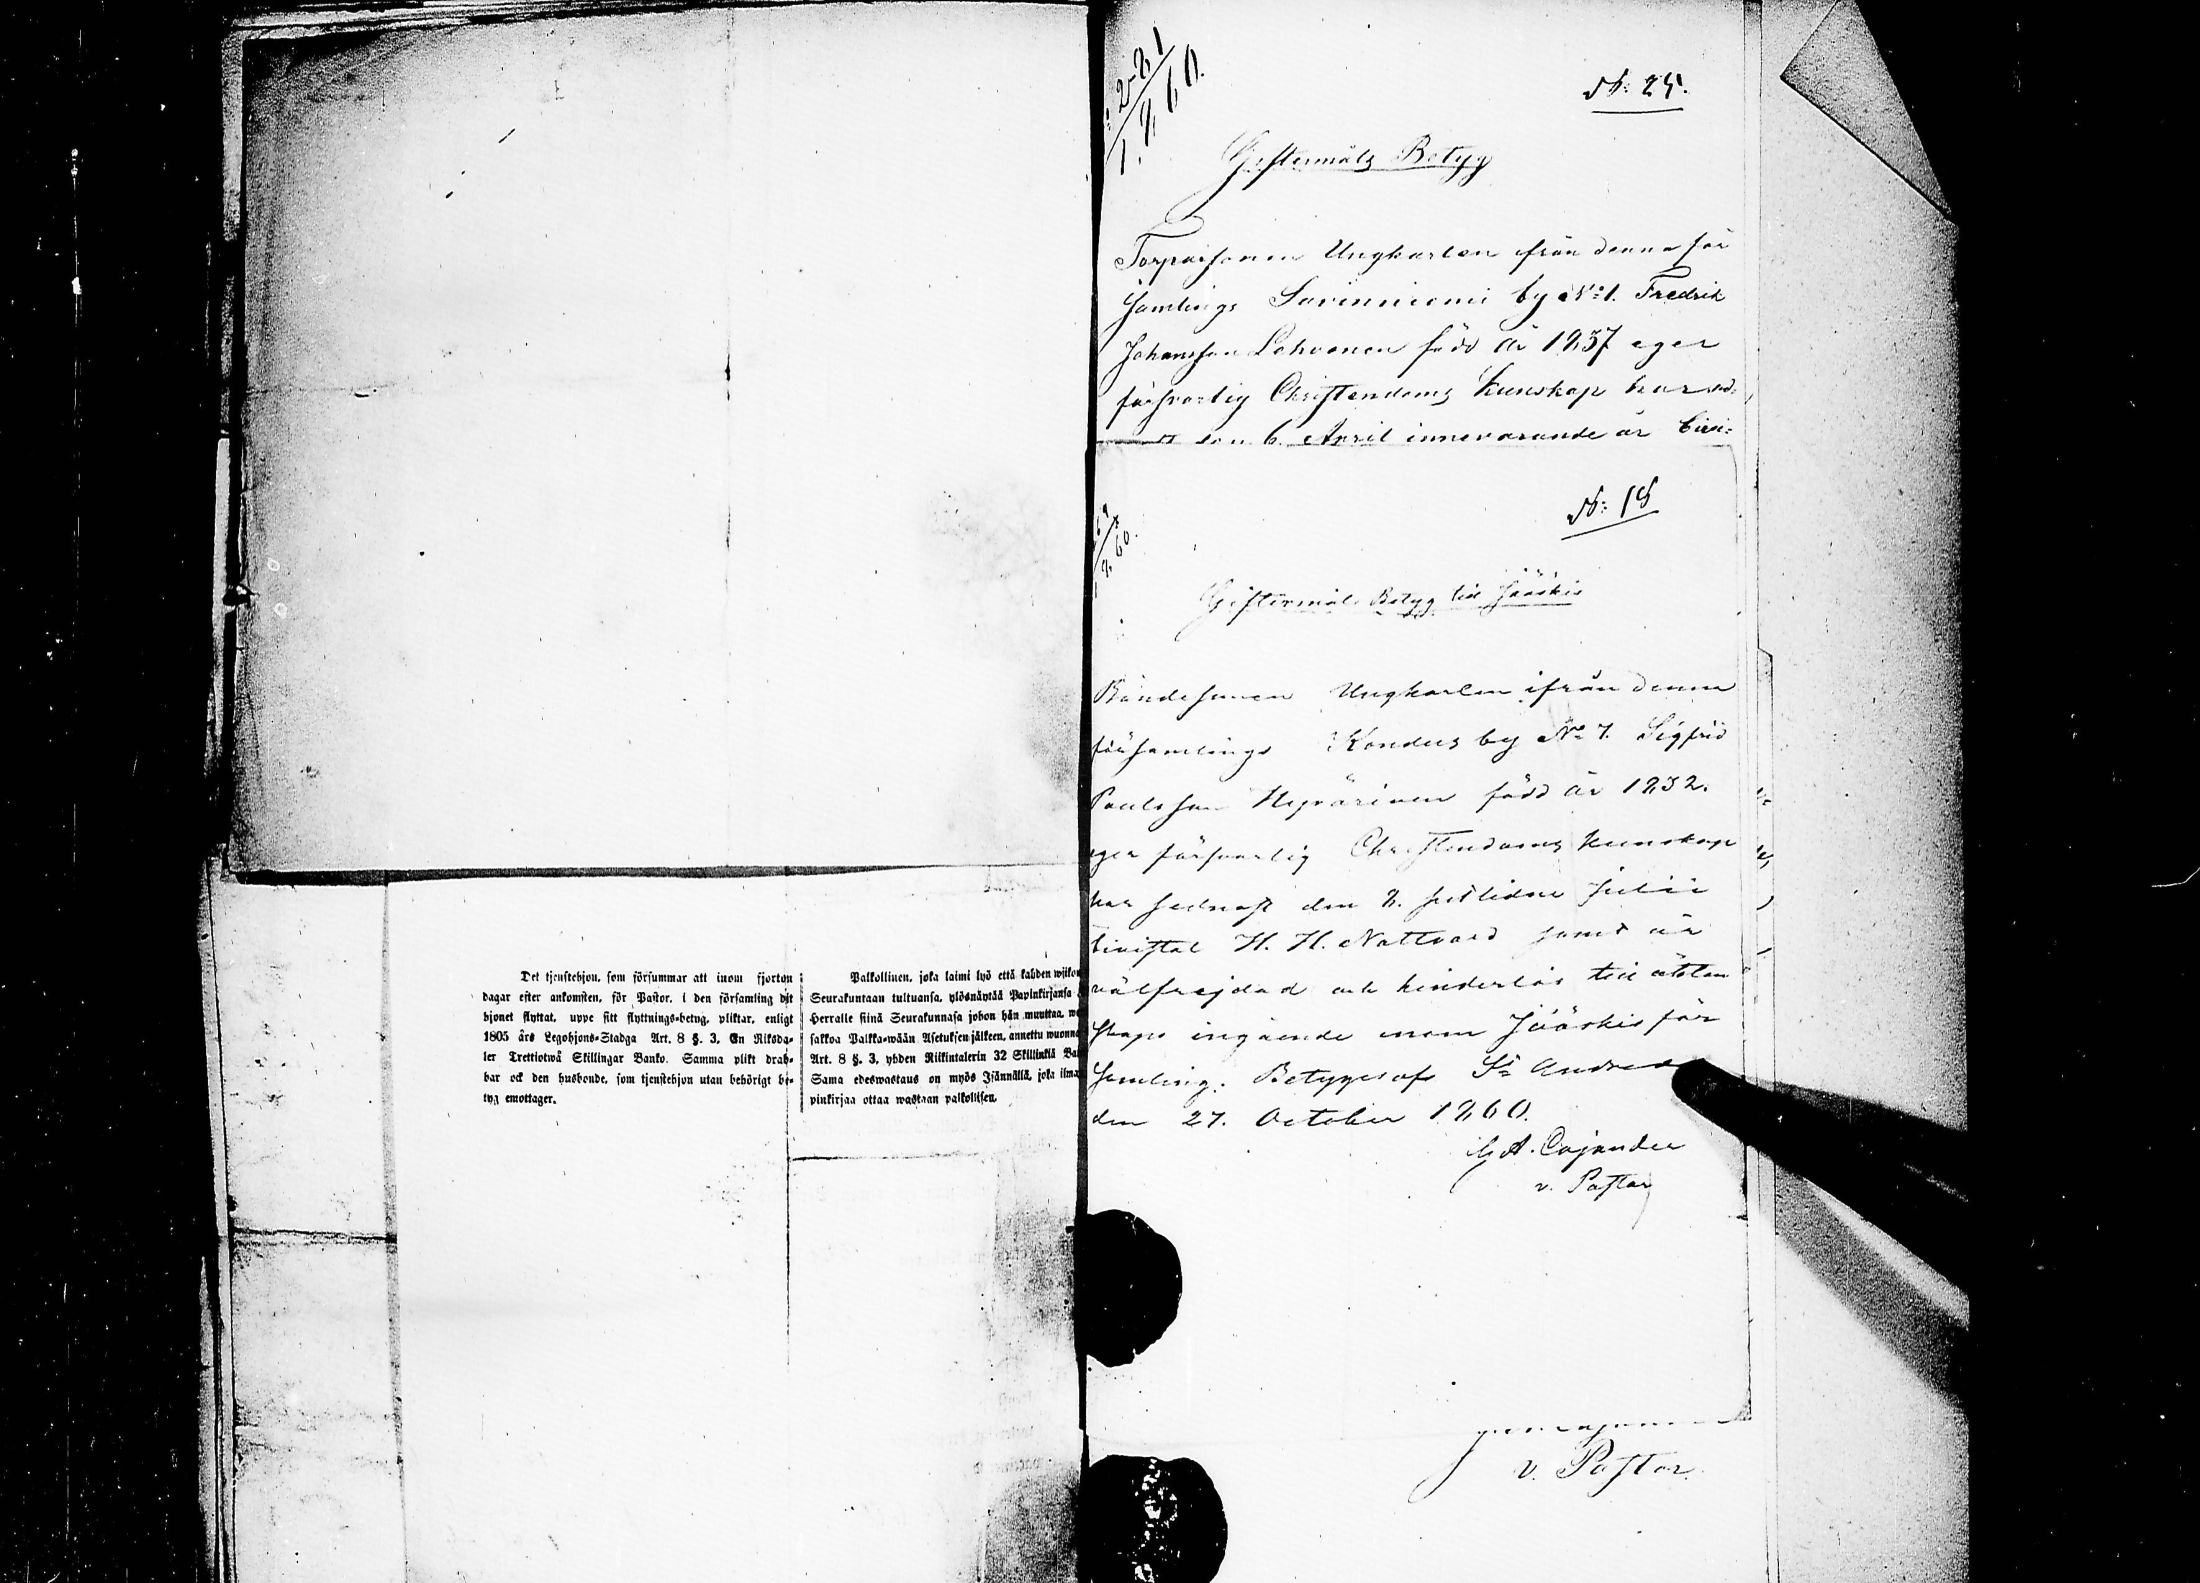 Det tjenstehjon, som försummar att inom fjorton
dagar efter ankomsten, för Pastor, i den församling dit
hjonet flyttat, uppe sitt flyttnings-betyg, pliktar, enligt
1805 års Legohjons-Stadga Art. 8 §. 3, En Riksda-
ler Trettiotwå Skillingar Banko. Samma plikt drab-
bar ock den husbonde, som tjenstehjon utan behörigt be-
tyg emottager.
Palkollinen, joka laimi lyö että kahden wiiko
Seurakuntaan tultuansa, ylösnäytää Papinkirjansa
Herralle siinä Seurakunnasa johon hän muuttaa,
sakkoa Palkka-wään Asetuksen jälkeen, annettu wuonna
Art. 8 §. 3, yhden Riikintalerin 32 Skillinkiä Ba
Sama edeswastaus on myös Isännällä, joka ilma
pinkirjaa ottaa wastaan palkollisen.
281
1. 8/60.
N: 25.
Giftermåls Betyg
Torparsonen Ungkarlen från denna för
samlings Savinniemi by No 1. Fredrik
Johansson Lehvonen född år 1837 eger
försvarlig Christendoms Kunskap har sed-
den 6. April innevarande år bivi-
N: 18
8/60.
Giftermåls Betyg till Jääskis
Bondesonen Ungkarlen ifrån denna
församlings Kondus by No 7. Sigfrid
Paulsson Hyvärinen född år 1832.
eger försvarlig Christendoms Kunskap
har sednast den 8. sistlidne Julii
bivistat H. H. Nattvard samt är
välfrejdad och hinderlös till äkten
skaps ingående inom Jääskis för
samling. Betygas af St Andreæ
den 27. October 1860.
G A. Cajander
v. Pastor
v. Pastor.